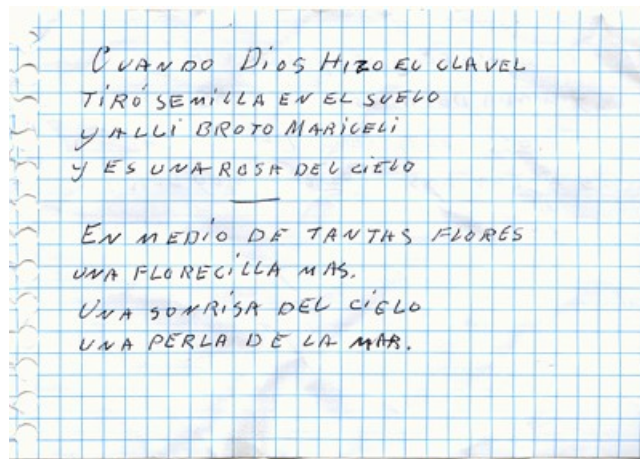 CUANDO DIOS HIZO EL CLAVEL
TIRÓ SEMILLA EN EL SUELO
Y ALLI BROTO MARICELI
Y ES UNA ROSA DEL CIELO
EN MEDIO DE TANTAS FLORES
UNA FLORECILLA MAS.
UNA SONRISA DEL CIELO
UNA PERLA DE LA MAR.